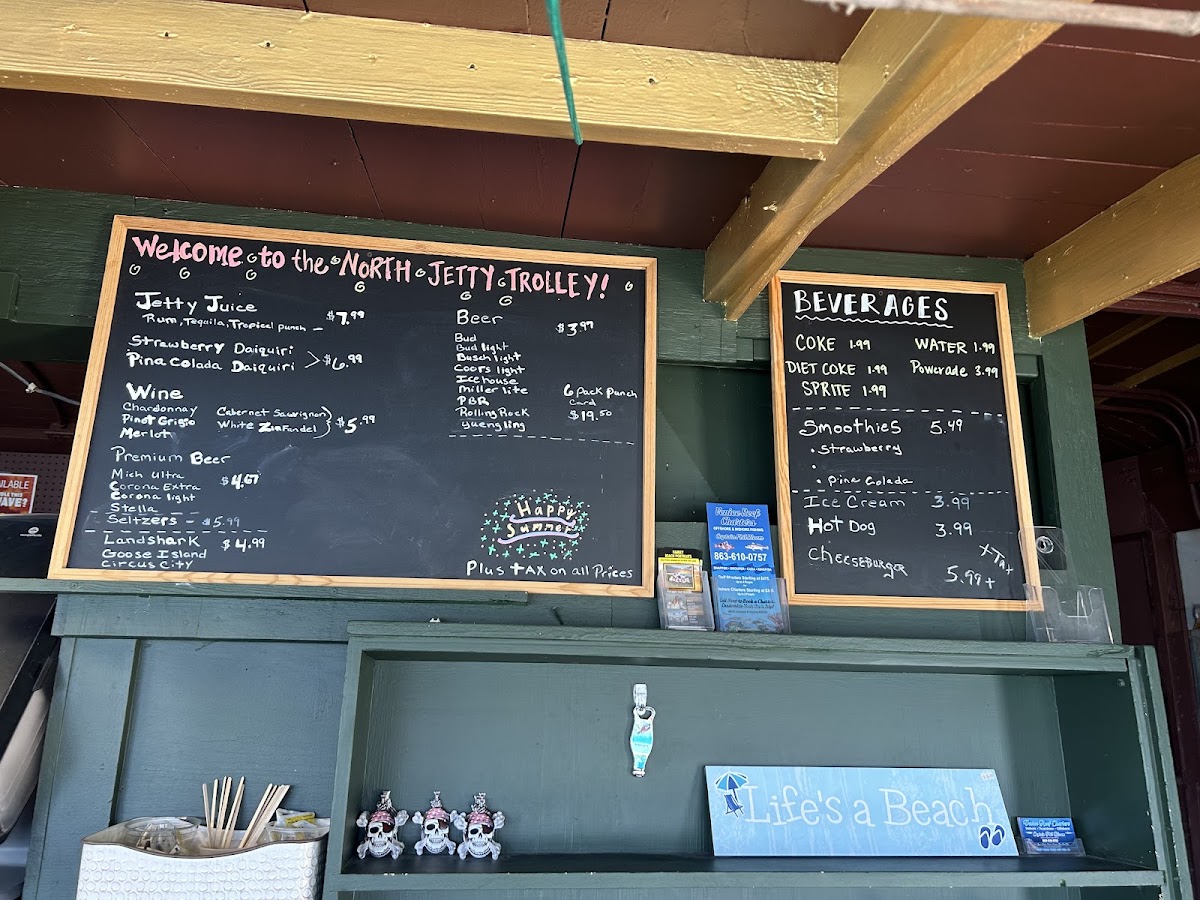 Welcome to the NORTH JETTY TROLLEY!
Jetty Juice
Rum, Tequila, Tropical punch - $7.99
Strawberry Daiquiri
Pina Colada Daiquiri > $6.99
Wine
Chardonnay Cabernet Sauvignon
Pinot Grigio White Zinfandel } $5.99
Merlot
Premium Beer
Mich Ultra
Corona Extra $4.67
Corona light
Stella
Seltzers - $5.99
Landshark $4.99
Goose Island
Circus City
Beer $3.97
Bud
Bud light
Busch light
Coors light
Icehouse
Miller lite 6 pack punch
PBR card
Rolling Rock $19.50
yuengling
Happy
Summer
Plus tax on all Prices
BEVERAGES
COKE 1.99 WATER 1.99
DIET COKE 1.99 Powerade 3.99
SPRITE 1.99
Smoothies 5.49
• Strawberry
•
• Pina Colada
Ice Cream 3.99
Hot Dog 3.99
Cheeseburger 5.99+
Venice Reef
Charters
863-610-0757
Life's a Beach
Venice Reef Charters